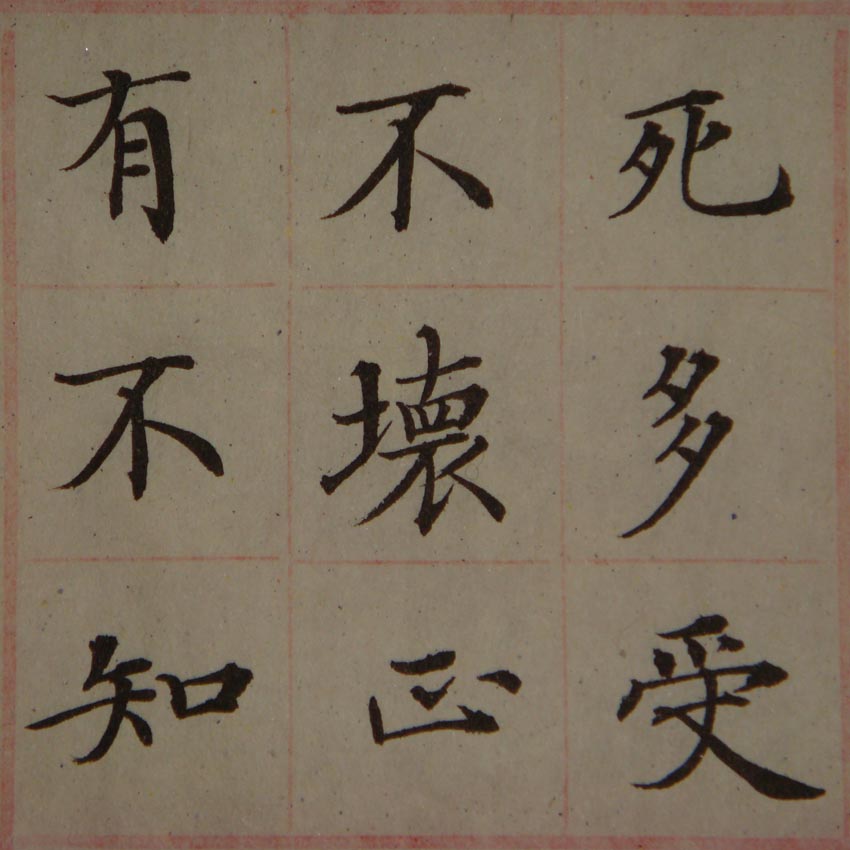 死多受
不壞正
有不知